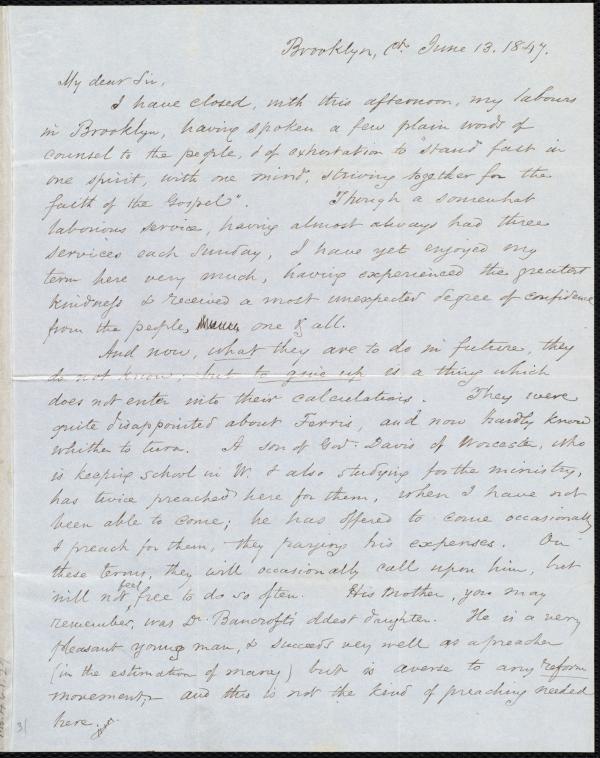 Brooklyn, Ct. June 13. 1847.
My dear Sir,
I have closed, with this afternoon, my labours
in Brooklyn, having spoken a few plain words of
counsel to the people, & of exhortation to "stand fast in
one spirit, with one mind, striving together for the
faith of the Gospel". Though a somewhat
laborious service, having almost always had three
services each Sunday, I have yet enjoyed my
term here very much, having experienced the greatest
kindness & received a most unexpected degree of confidence
from the people, one & all.
And now, what they are to do in future, they
do not know; but to give up is a thing which
does not enter into their calculations. They were
quite disappointed about Ferris, and now hardly know
whither to turn. A son of Gov. Davis of Worcester, who
is keeping school in W. & also studying for the ministry,
has twice preached here for them, when I have not
been able to come; he has offered to come occasionally
& preach for them, they paying his expenses. On
these terms, they will occasionally call upon him, but
will not feel free to do so often. His mother, you may
remember, was Dr. Bancroft's oldest daughter. He is a very
pleasant young man, & succeeds very well as a preacher
(in the estimation of many) but is averse to any reform
movements, and this is not the kind of preaching needed
here just.